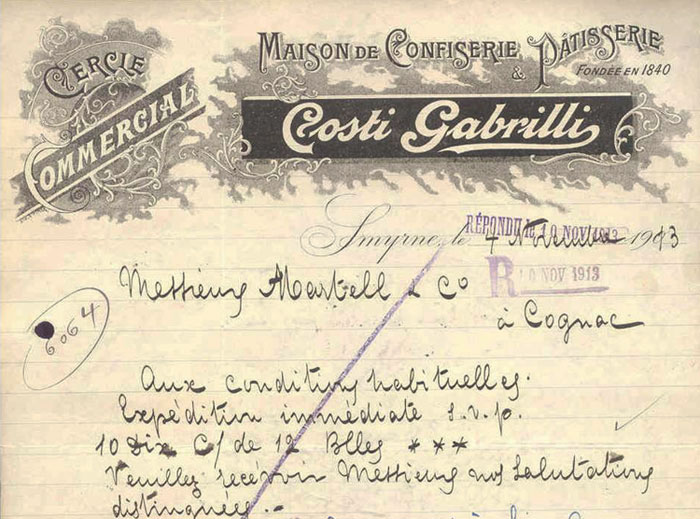 CERCLE
COMMERCIAL
MAISON DE CONFISERIE & PÂTISSERIE
FONDÉE EN 1840
Costi Gabrilli
Smyrne, le 4 Novembre 1913
RÉPONDU le 10 NOV 1913
R 10 NOV 1913
Messieurs Martell & Co
à Cognac
6064
Aux conditions habituelles.
Expédition immédiate s.v.p.
10 Dix C/ de 12 Blles ***
Veuillez recevoir Messieurs nos salutations
distinguées.-